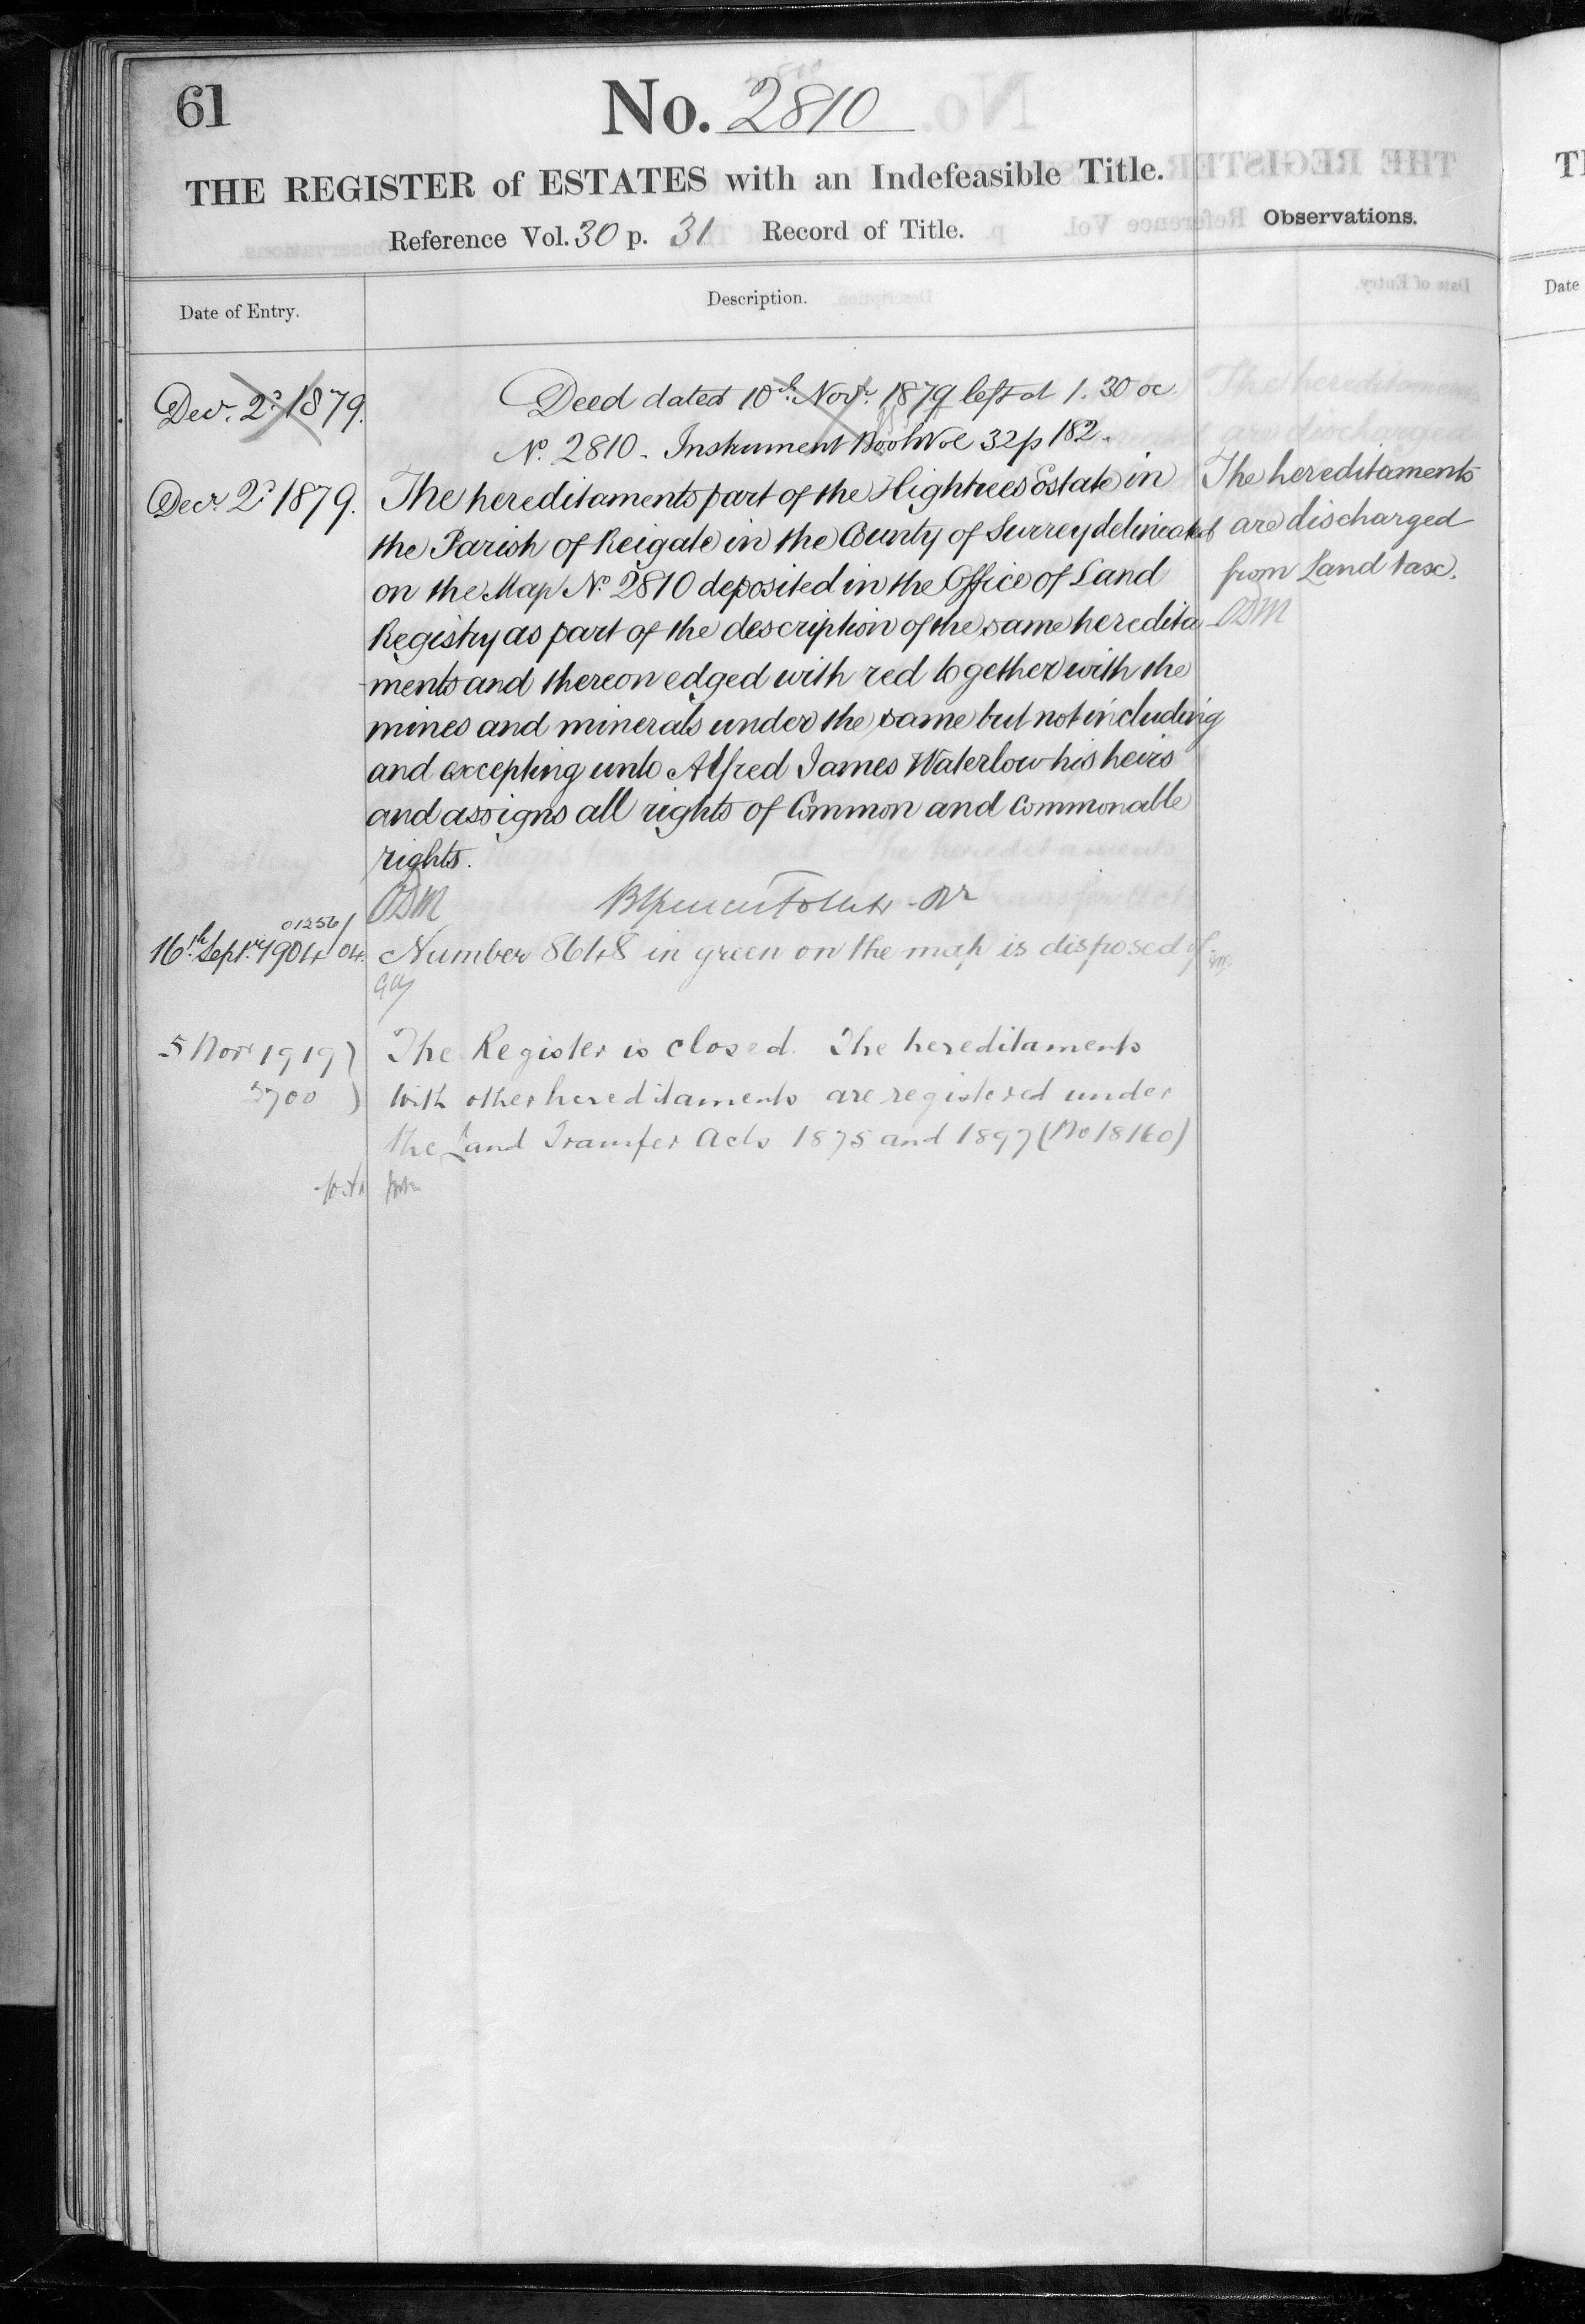 61
No. 2810
THE REGISTER of ESTATES with an Indefeasible Title.
Reference Vol. 30 p. 31 Record of Title.
Observations.
Date of Entry.
Description.
Decr. 2d 1879.
Deed dated 10th Novr. 1879 left at 1.30 oc.
No. 2810 - Instrument Book Vol 32 p 182.
Decr. 2d 1879.
The hereditaments part of the Hightrees Estate in
the Parish of Reigate in the County of Surrey delineated
on the Map No. 2810 deposited in the Office of Land
Registry as part of the description of the same heredita
ments and thereon edged with red together with the
mines and minerals under the same but not including
and excepting unto Alfred James Waterlow his heirs
and assigns all rights of Common and Commonable
rights.
The hereditaments
are discharged
from Land tax.
16th Septr. 1904
01256/
04.
Number 8648 in green on the map is disposed of
5 Novr 1919)
5700 )
The Register is closed. The hereditaments
with other hereditaments are registered under
the Land Transfer Acts 1875 and 1897 (No 18160)
Date